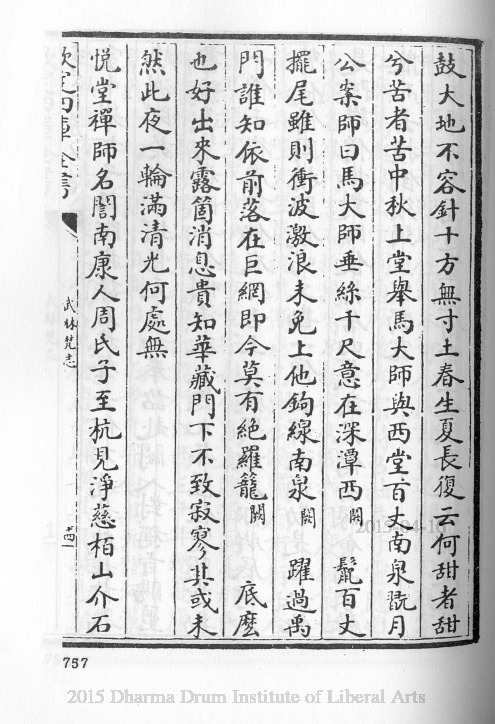 鼓大地不容針十方無寸土春生夏長復云何甜者甜
兮苦者苦中秋上堂舉馬大師與西堂百丈南泉翫月
公案師曰馬大師垂絲千尺意在深潭西闕 鬣百丈
擺尾雖則衝波激浪未免上他鉤線南泉闕 躍過禹
門誰知依前落在巨網即今莫有絕羅籠闕 底麼
也好出來露箇消息貴知華藏門下不致寂寥其或未
然此夜一輪滿清光何處無
悅堂禪師名誾南康人周氏子至杭見淨慈栢山介石
欽定四庫全書
武林梵志
757
2015-04-10
2015 Dharma Drum Institute of Liberal Arts